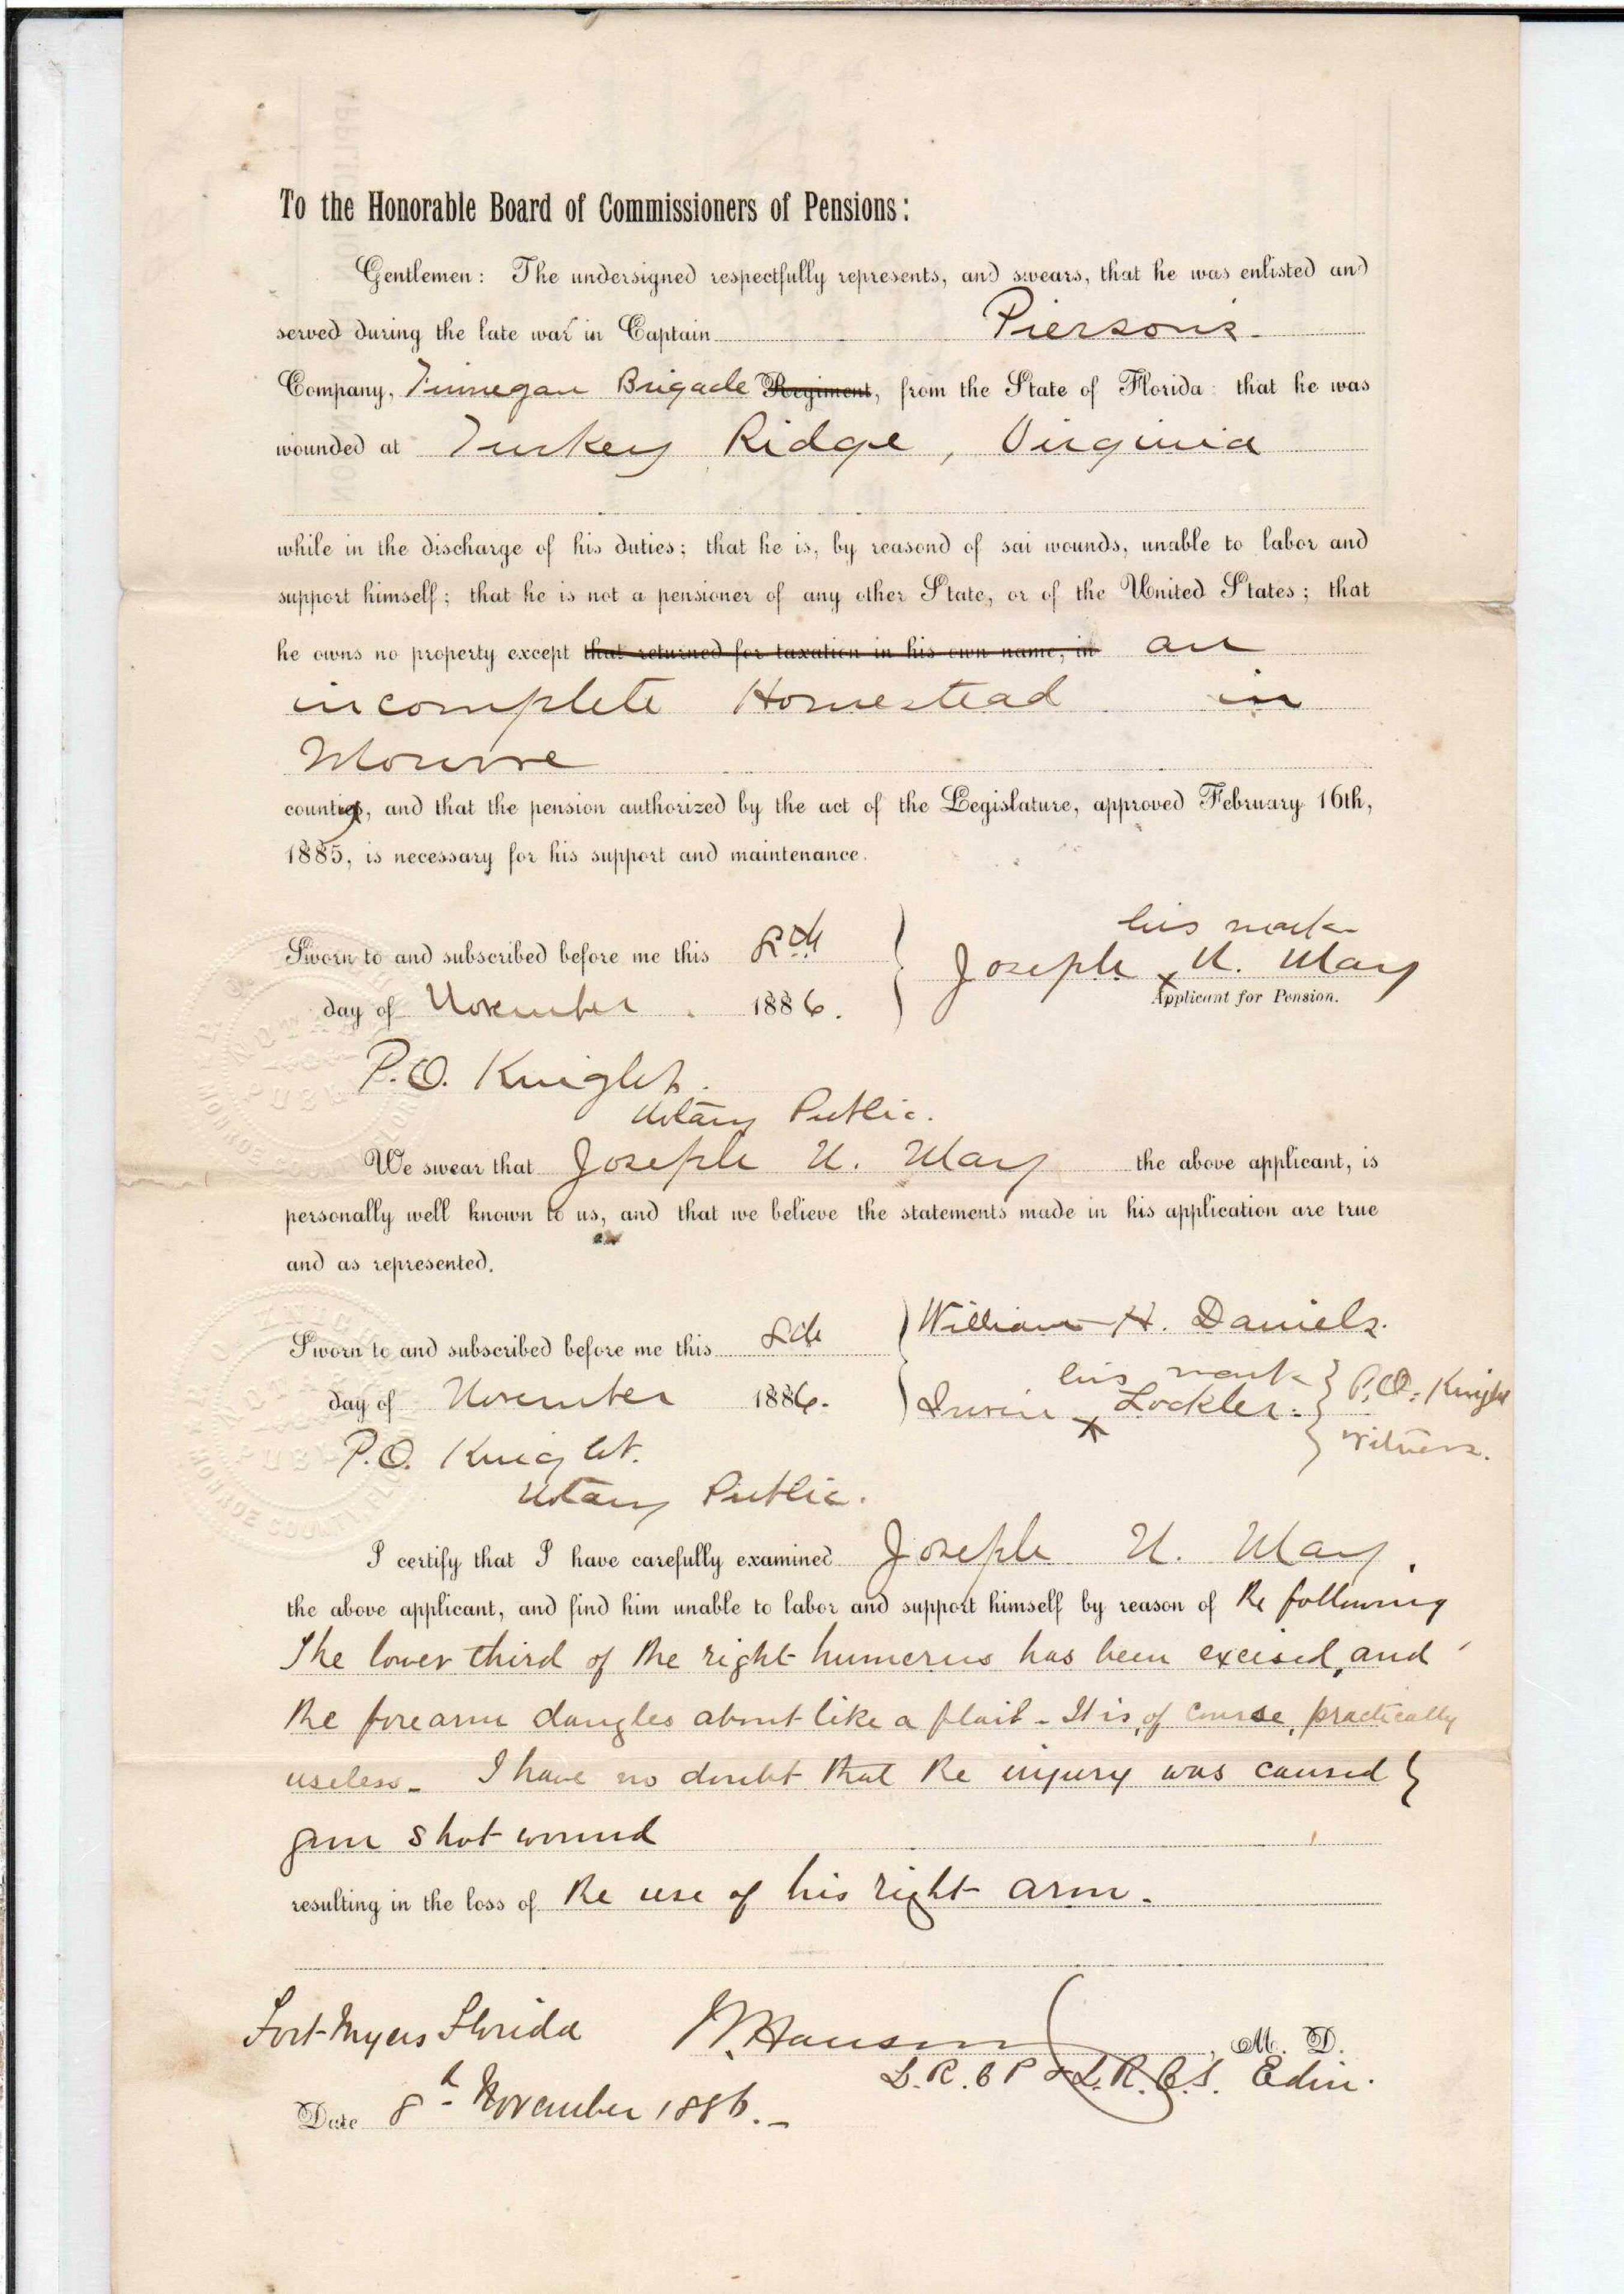 To the Honorable Board of Commissioners of Pensions:
Gentlemen: The undersigned respectfully represents, and swears, that he was enlisted and
served during the late war in Captain Pierson's
Company, Finnegan Brigade Regiment, from the State of Florida: that he was
wounded at Turkey Ridge, Virginia
while in the discharge of his duties; that he is, by reasond of sai wounds, unable to labor and
support himself; that he is not a pensioner of any other State, or of the United States; that
he owns no property except that returned for taxation in his own name, in an
incomplete Homestead in
Monroe
county, and that the pension authorized by the act of the Legislature, approved February 16th,
1885, is necessary for his support and maintenance.
his mark
Sworn to and subscribed before me this 8th
Joseph x N. May
Applicant for Pension.
day of November 1886.
P.O. Knight.
Notary Public.
We swear that Joseph N. May the above applicant, is
personally well known to us, and that we believe the statements made in his application are true
and as represented.
William H. Daniels.
Sworn to and subscribed before me this 8th
his mark
day of November 1886.
Irvin x Lockler. P.O. Knight
Witness.
P.O. Knight.
Notary Public.
I certify that I have carefully examined Joseph N. May,
the above applicant, and find him unable to labor and support himself by reason of the following
The lower third of the right humerus has been excised, and
the forearm dangles about like a flail - It is, of course, practically
useless - I have no doubt that the injury was caused
gun shot wound
resulting in the loss of the use of his right arm.
Fort Myers Florida
Hanson, M. D.
L.R.C.P & L.R.C.S. Edin.
Date 8th November 1886.
P. O. KNIGHT
NOTARY
PUBLIC
MONROE COUNTY, FLORIDA